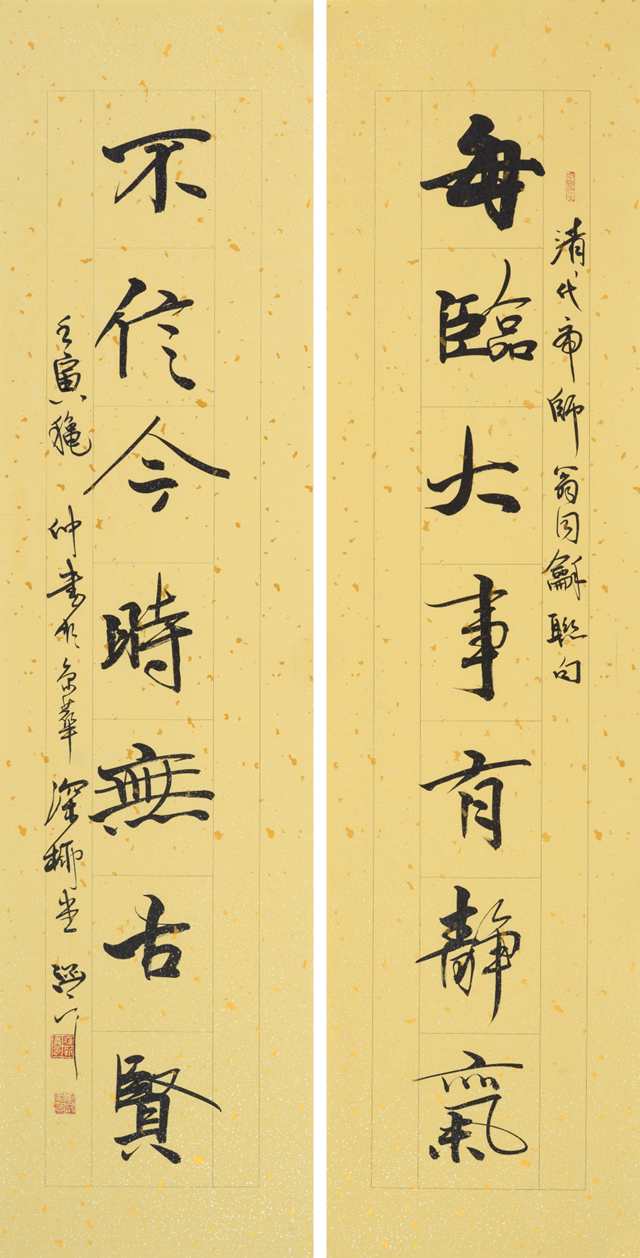 清代帝師翁同龢聯句
每臨大事有靜氣
不信今時無古賢
壬寅穐仲書於京華深柳堂